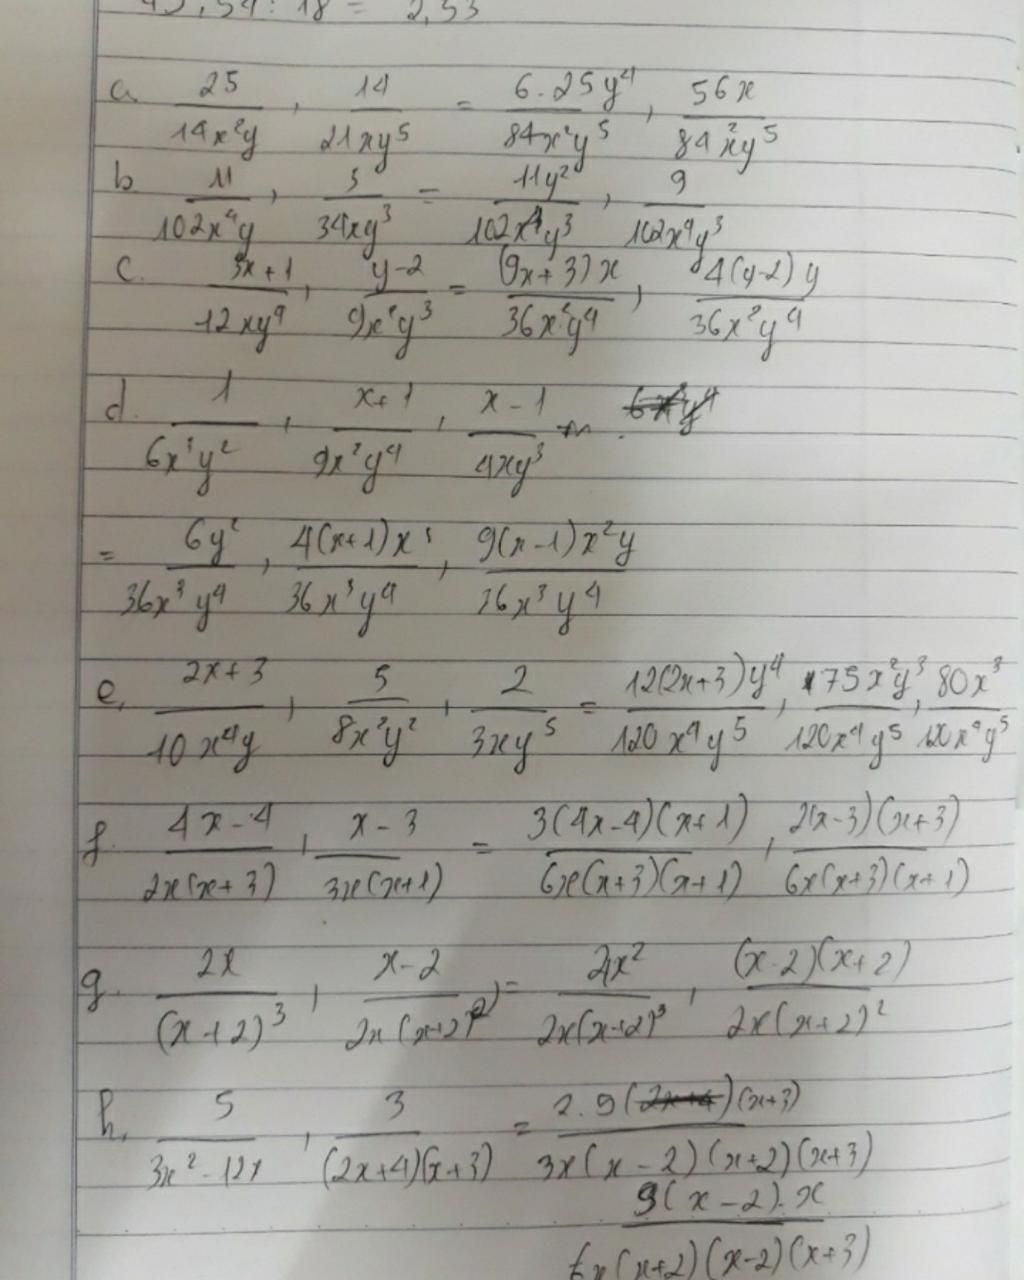 45,54 : 18 = 2,53
a. 25/14x²y , 14/21xy⁵ = 6.25y⁴/84x²y⁵ , 56x/84x²y⁵
b. 11/102x⁴y , 3/34xy³ = 11y²/102x⁴y³ , 9/102x⁴y³
c. 3x+1/12xy⁴ , y-2/9x²y³ = (9x+3)x/36x²y⁴ , 4(y-2)y/36x²y⁴
d. 1/6x³y² , x+1/9x²y⁴ , x-1/4xy³
= 6y²/36x³y⁴ , 4(x+1)x/36x³y⁴ , 9(x-1)x²y/36x³y⁴
e, 2x+3/10x⁴y , 5/8x²y² , 2/3xy⁵ = 12(2x+3)y⁴/120x⁴y⁵ , 75x²y³/120x⁴y⁵ , 80x³/120x⁴y⁵
f. 4x-4/2x(x+3) , x-3/3x(x+1) = 3(4x-4)(x+1)/6x(x+3)(x+1) , 2(x-3)(x+3)/6x(x+3)(x+1)
g. 2x/(x+2)³ , x-2/2x(x+2)² = 4x²/2x(x+2)³ , (x-2)(x+2)/2x(x+2)²
h, 5/3x²-12x , 3/(2x+4)(x+3) = 2.9(x+3)/3x(x-2)(x+2)(x+3)
9(x-2).x/6x(x+2)(x-2)(x+3)